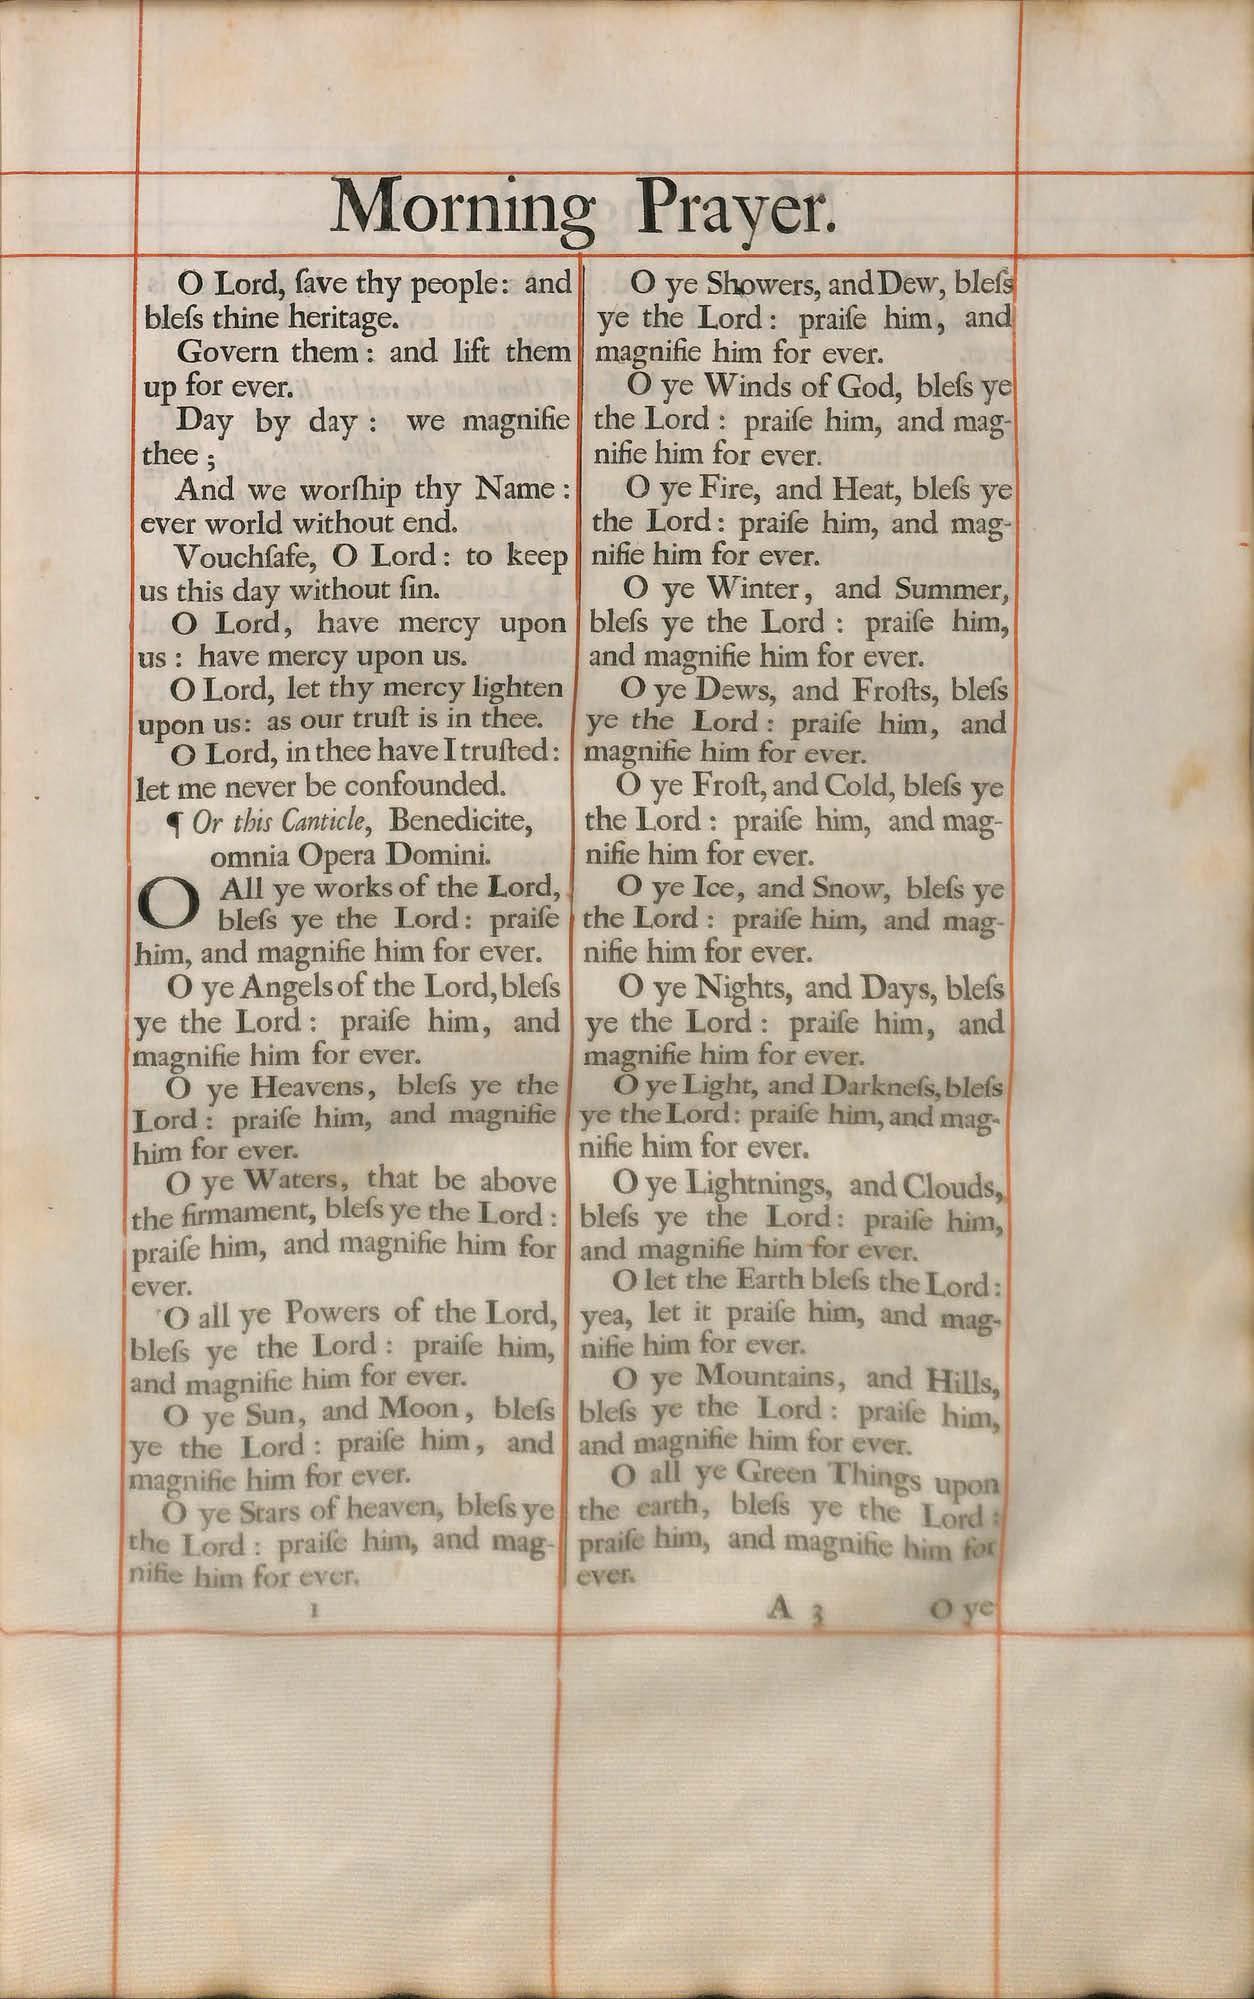 Morning Prayer.
O Lord, ſave thy people: and
bleſs thine heritage.
Govern them: and lift them
up for ever.
Day by day: we magnifie
thee;
And we worſhip thy Name:
ever world without end.
Vouchſafe, O Lord: to keep
us this day without ſin.
O Lord, have mercy upon
us: have mercy upon us.
O Lord, let thy mercy lighten
upon us: as our truſt is in thee.
O Lord, in thee have I truſted:
let me never be confounded.
¶ Or this Canticle, Benedicite,
omnia Opera Domini.
O All ye works of the Lord,
bleſs ye the Lord: praiſe
him, and magnifie him for ever.
O ye Angels of the Lord, bleſs
ye the Lord: praiſe him, and
magnifie him for ever.
O ye Heavens, bleſs ye the
Lord: praiſe him, and magnifie
him for ever.
O ye Waters, that be above
the firmament, bleſs ye the Lord:
praiſe him, and magnifie him for
ever.
O all ye Powers of the Lord,
bleſs ye the Lord: praiſe him,
and magnifie him for ever.
O ye Sun, and Moon, bleſs
ye the Lord: praiſe him, and
magnifie him for ever.
O ye Stars of heaven, bleſs ye
the Lord: praiſe him, and mag-
nifie him for ever.
1
O ye Showers, and Dew, bleſs
ye the Lord: praiſe him, and
magnifie him for ever.
O ye Winds of God, bleſs ye
the Lord: praiſe him, and mag-
nifie him for ever.
O ye Fire, and Heat, bleſs ye
the Lord: praiſe him, and mag-
nifie him for ever.
O ye Winter, and Summer,
bleſs ye the Lord: praiſe him,
and magnifie him for ever.
O ye Dews, and Froſts, bleſs
ye the Lord: praiſe him, and
magnifie him for ever.
O ye Froſt, and Cold, bleſs ye
the Lord: praiſe him, and mag-
nifie him for ever.
O ye Ice, and Snow, bleſs ye
the Lord: praiſe him, and mag-
nifie him for ever.
O ye Nights, and Days, bleſs
ye the Lord: praiſe him, and
magnifie him for ever.
O ye Light, and Darkneſs, bleſs
ye the Lord: praiſe him, and mag-
nifie him for ever.
O ye Lightnings, and Clouds,
bleſs ye the Lord: praiſe him,
and magnifie him for ever.
O let the Earth bleſs the Lord:
yea, let it praiſe him, and mag-
nifie him for ever.
O ye Mountains, and Hills,
bleſs ye the Lord: praiſe him,
and magnifie him for ever.
O all ye Green Things upon
the earth, bleſs ye the Lord:
praiſe him, and magnifie him for
ever.
A 3 O ye